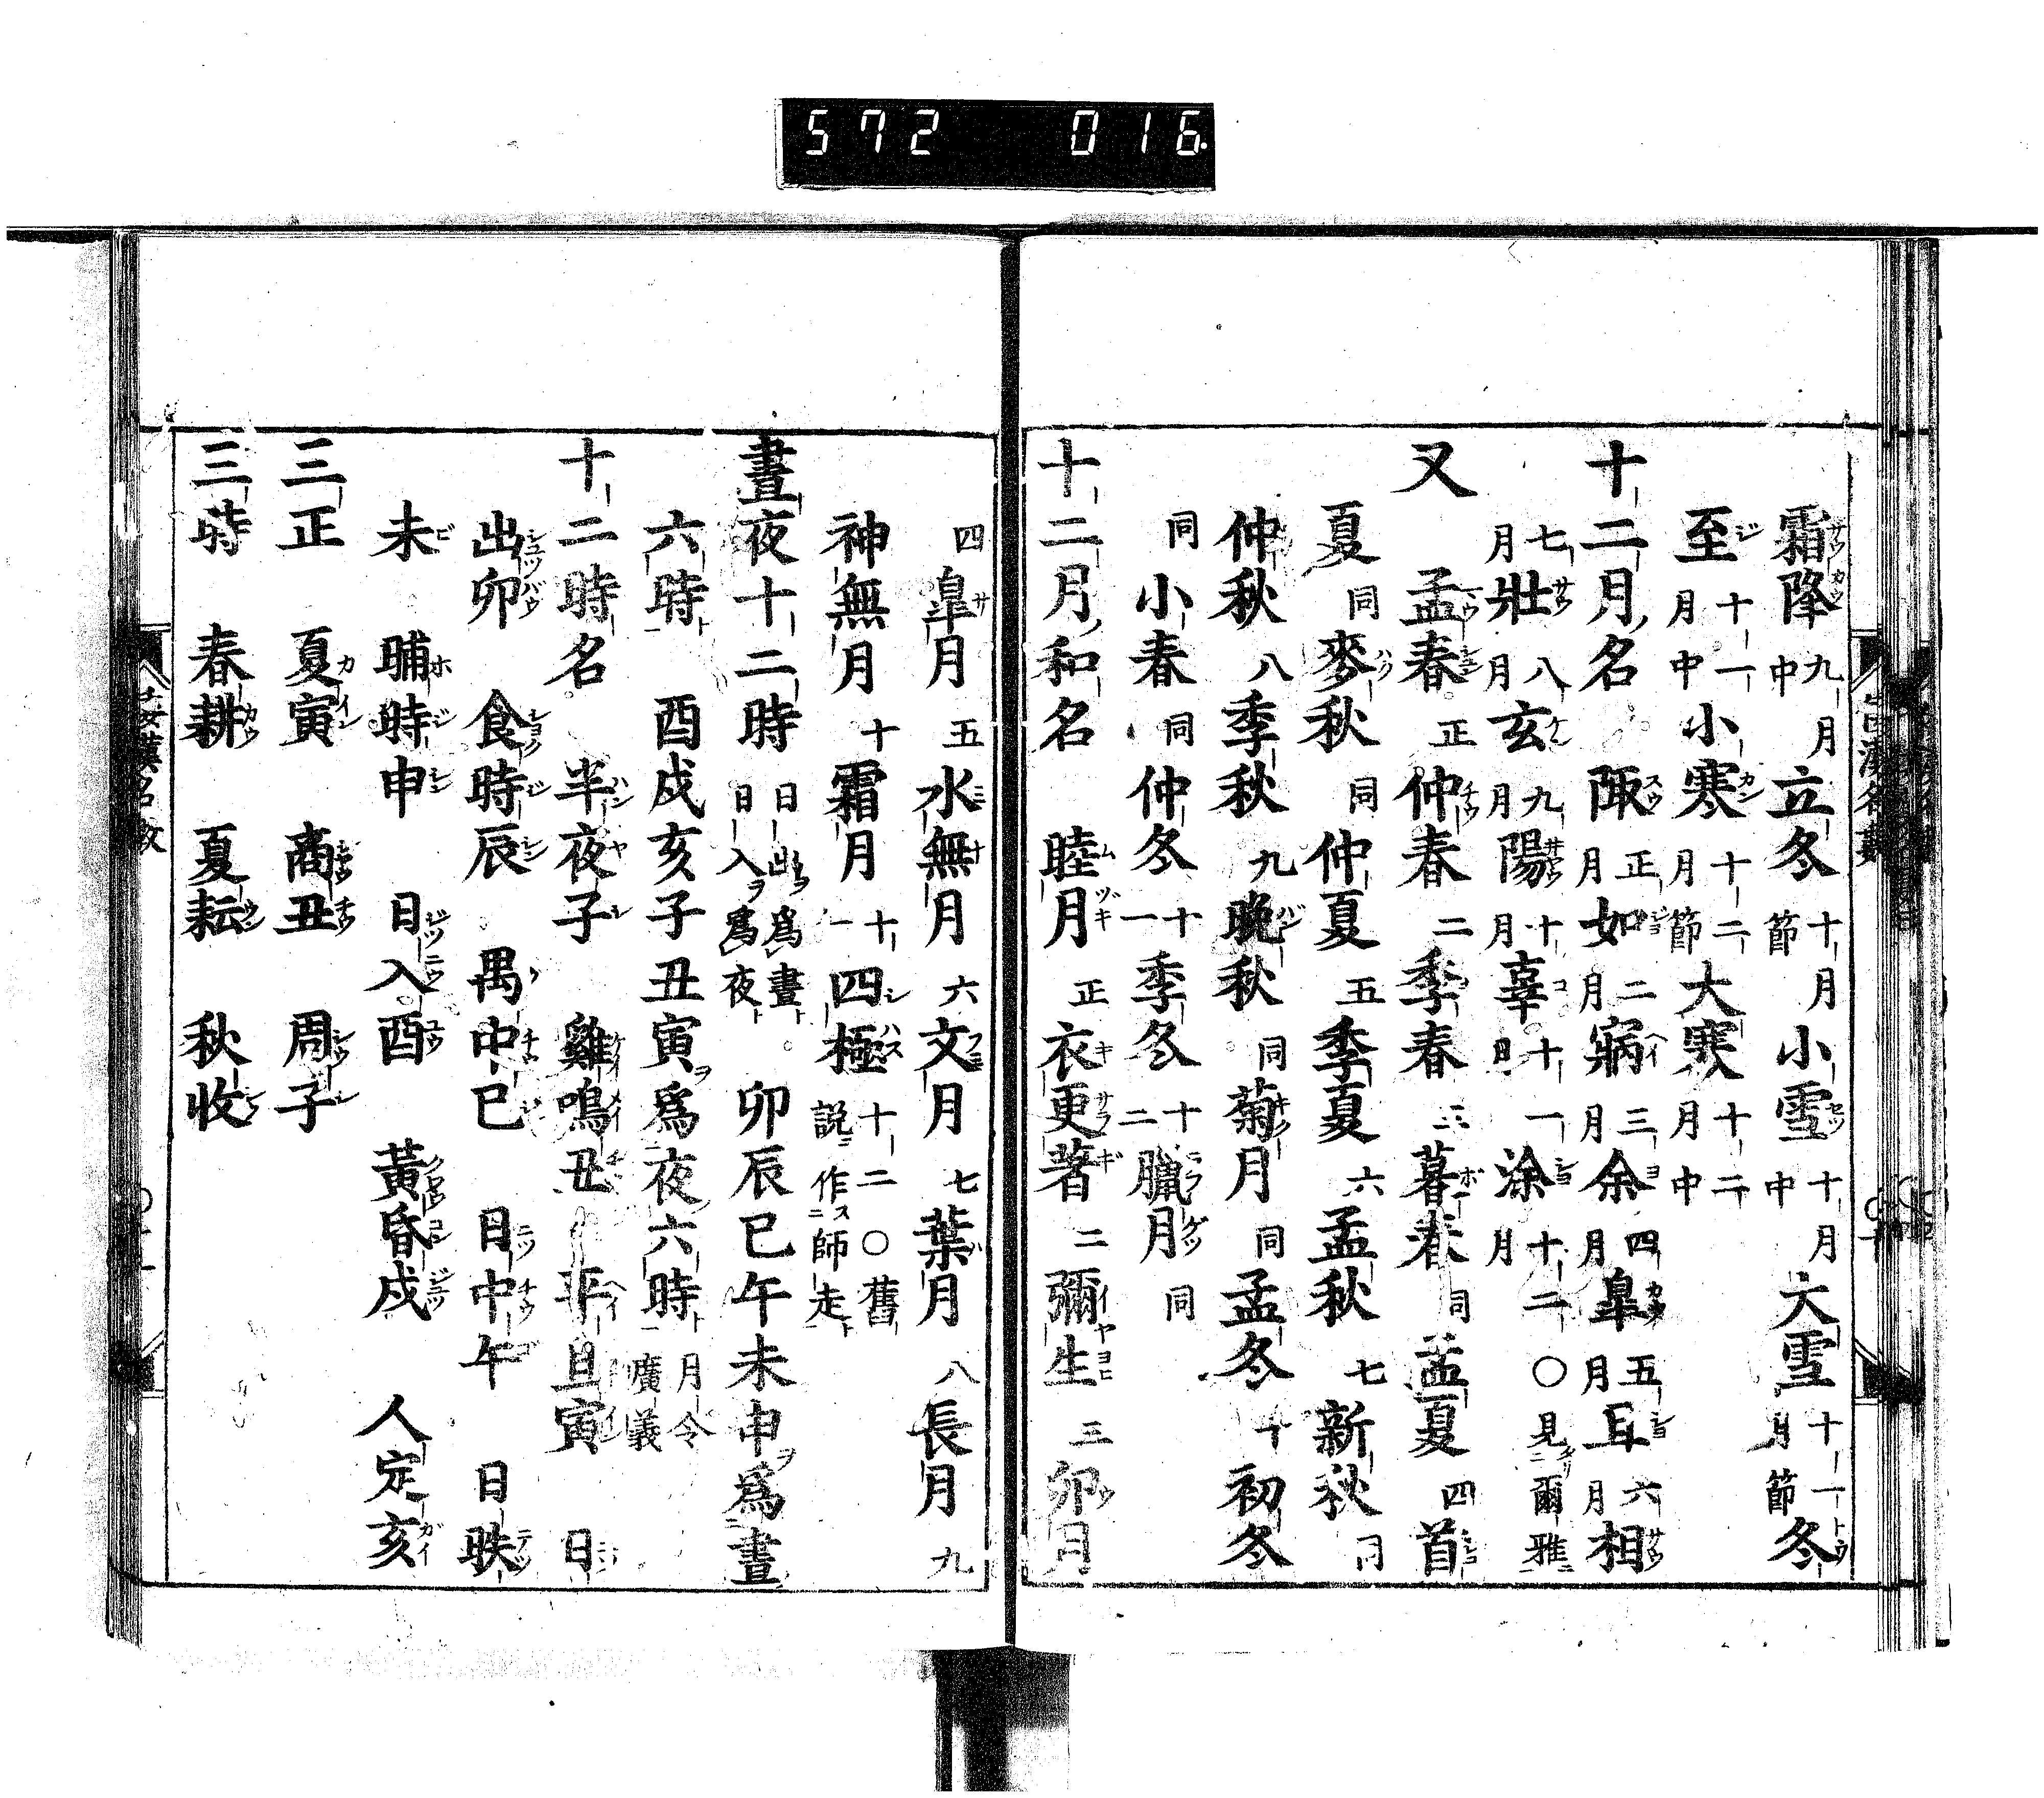 572 016
霜降九月中 立冬十月節 小雪十月中 大雪十一月節 冬
至十一月中 小寒十二月節 大寒十二月中
十二月名 陬正月 如二月 寎三月 余四月 皐五月 且六月 相
七月 壯八月 玄九月 陽十月 辜十一月 涂十二月 〇見爾雅
又 孟春正 仲春二 季春三 暮春同 孟夏四 首
夏同 麥秋同 仲夏五 季夏六 孟秋七 新秋同
仲秋八 季秋九 晩秋同 菊月同 孟冬十 初冬
同 小春同 仲冬十一 季冬十二 臘月同
十二月和名 睦月正 衣更著二 彌生三 卯月
四 皐月五 水無月六 文月七 葉月八 長月九
神無月十 霜月十一 四極十二〇舊說作師走
晝夜十二時 日出爲晝日入爲夜 卯辰巳午未申爲晝
六時 酉戌亥子丑寅爲夜六時 月令廣義
十二時名 半夜子 雞鳴丑 平旦寅 日
出卯 食時辰 禺中巳 日中午 日昳
未 晡時申 日入酉 黃昏戌 人定亥
三正 夏寅 商丑 周子
三時 春耕 夏耘 秋收